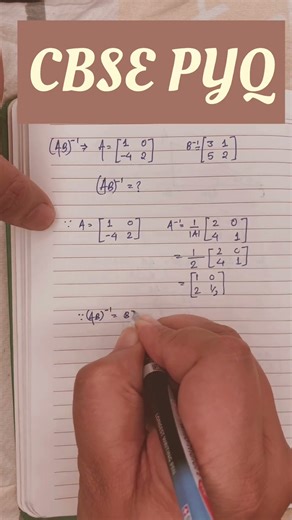 CBSE PYQ
(AB)⁻¹ → A = [1 0
-4 2] B⁻¹ = [3 1
5 2]
(AB)⁻¹ = ?
∵ A = [1 0
-4 2] A⁻¹ = 1/|A| [2 0
4 1]
= 1/2 [2 0
4 1]
= [1 0
2 1/2]
∵ (AB)⁻¹ = B